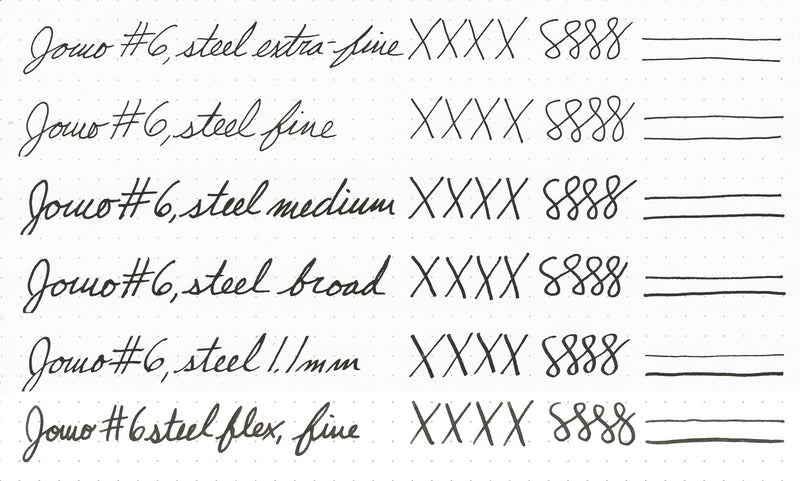 Jowo #6, steel extra-fine XXXX 8888
Jowo #6, steel fine XXXX 8888
Jowo #6, steel medium XXXX 8888
Jowo #6, steel broad XXXX 8888
Jowo #6, steel 1.1mm XXXX 8888
Jowo #6 steel flex, fine XXXX 8888